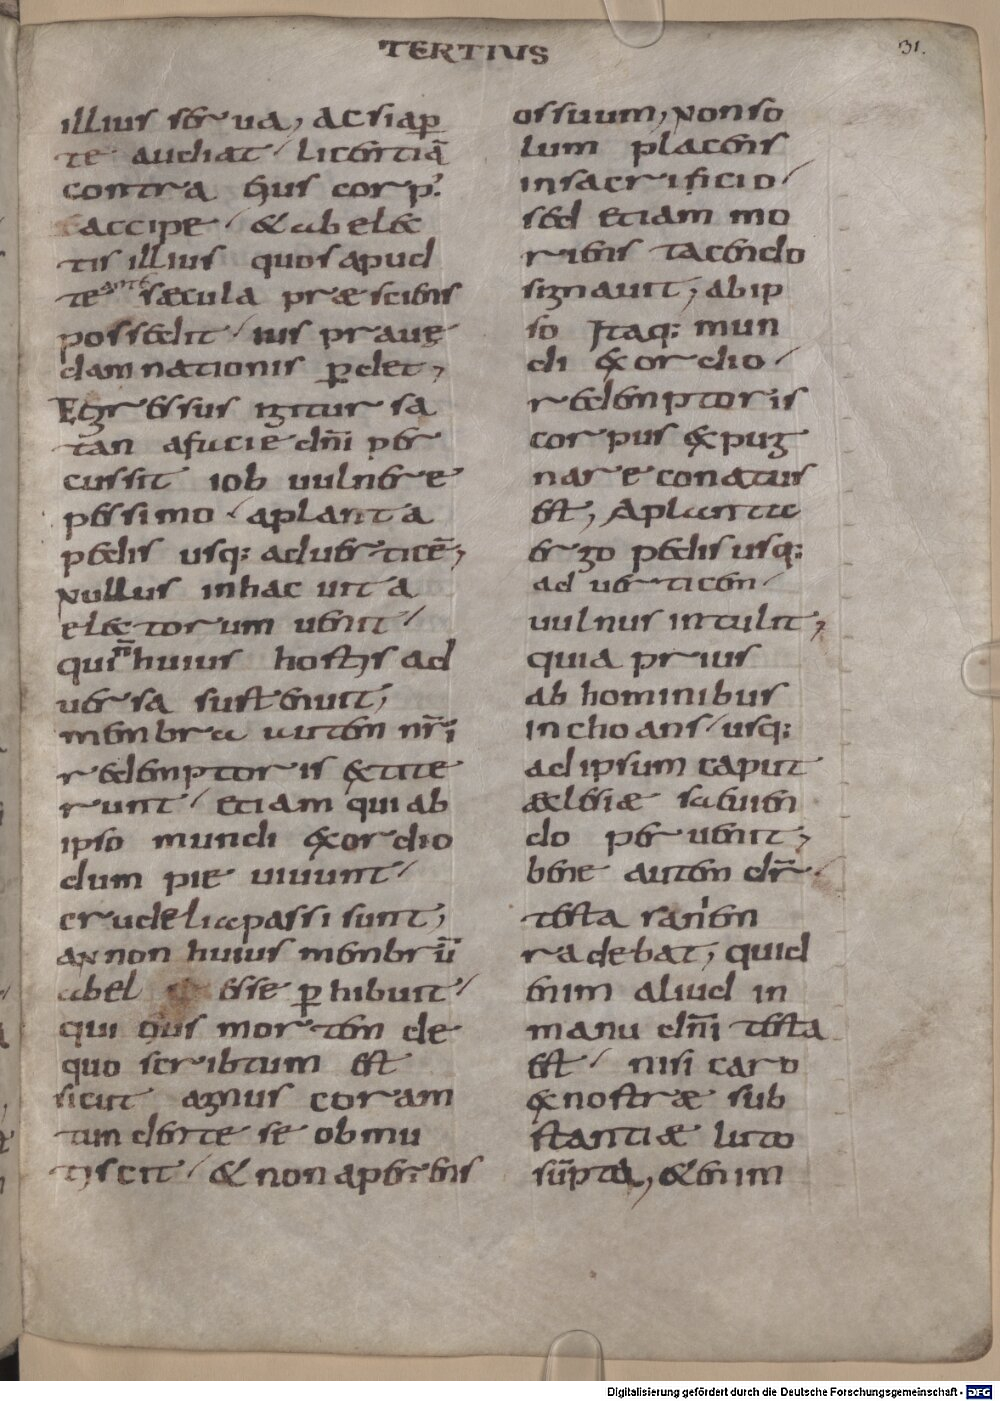 TERTIUS
31.
illius serua, ac si ap̱
te audiat / licentiā
contra eius corp'.
accipe / & ab elec
tis illius quos apud
te ante sæcula præsciens
possedit / ius prauę
damnationis p̱det,
Egressus igitur sa
tan a facie dn̄i per
cussit iob uulnere
pessimo / a planta
pedis usq: ad uerticē,
Nullus in hac uita
electorum uenit /
qui n̄ huius hostis ad
uersa sustenuit,
membra autem nr̄i
redemptoris extite
runt / etiam qui ab
ipso mundi exordio
dum pie uiuunt /
crudelia passi sunt,
an non huius membrū
abel esse p̱hibuit /
qui eius mortem de
quo scribtum est
sicut agnus coram
tundente se obmu
tiscit / & non aperiens
os suum, Non so
lum placens
in sacrificio /
sed etiam mo
riens tacendo
signauit, ab ip
so Itaq: mun
di exordio /
redemptoris
corpus expug
nare conatus
est, A planta
ergo pedis usq:
ad uerticem /
uulnus intulit,
quia prius
ab hominibus
inchoans / usq:
ad ipsum caput
æclesiæ sæuien
do peruenit,
bene autem dr̄ /
testa saniem
radebat, quid
enim aliud in
manu dn̄i testa
est / nisi caro
ex nostræ sub
stantiæ luto
sūpta, &enim
Digitalisierung gefördert durch die Deutsche Forschungsgemeinschaft - DFG